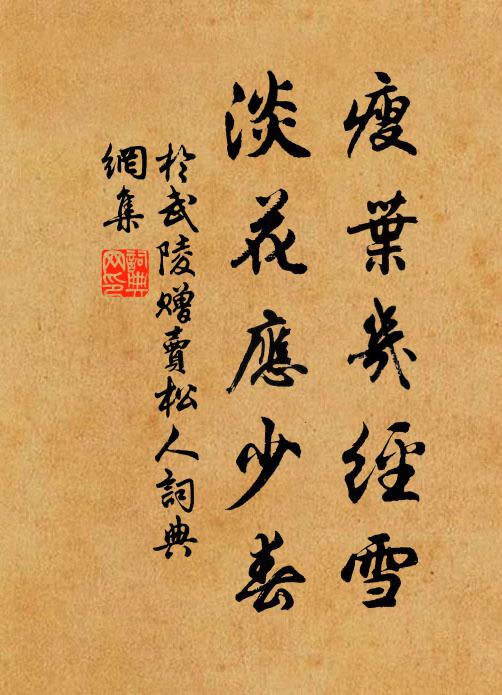 瘦葉幾經雪
淡花應少春
於武陵贈賣松人詞典
網集
詞典
网印